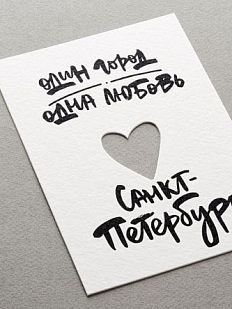 один город
одна любовь
Санкт-
Петербур